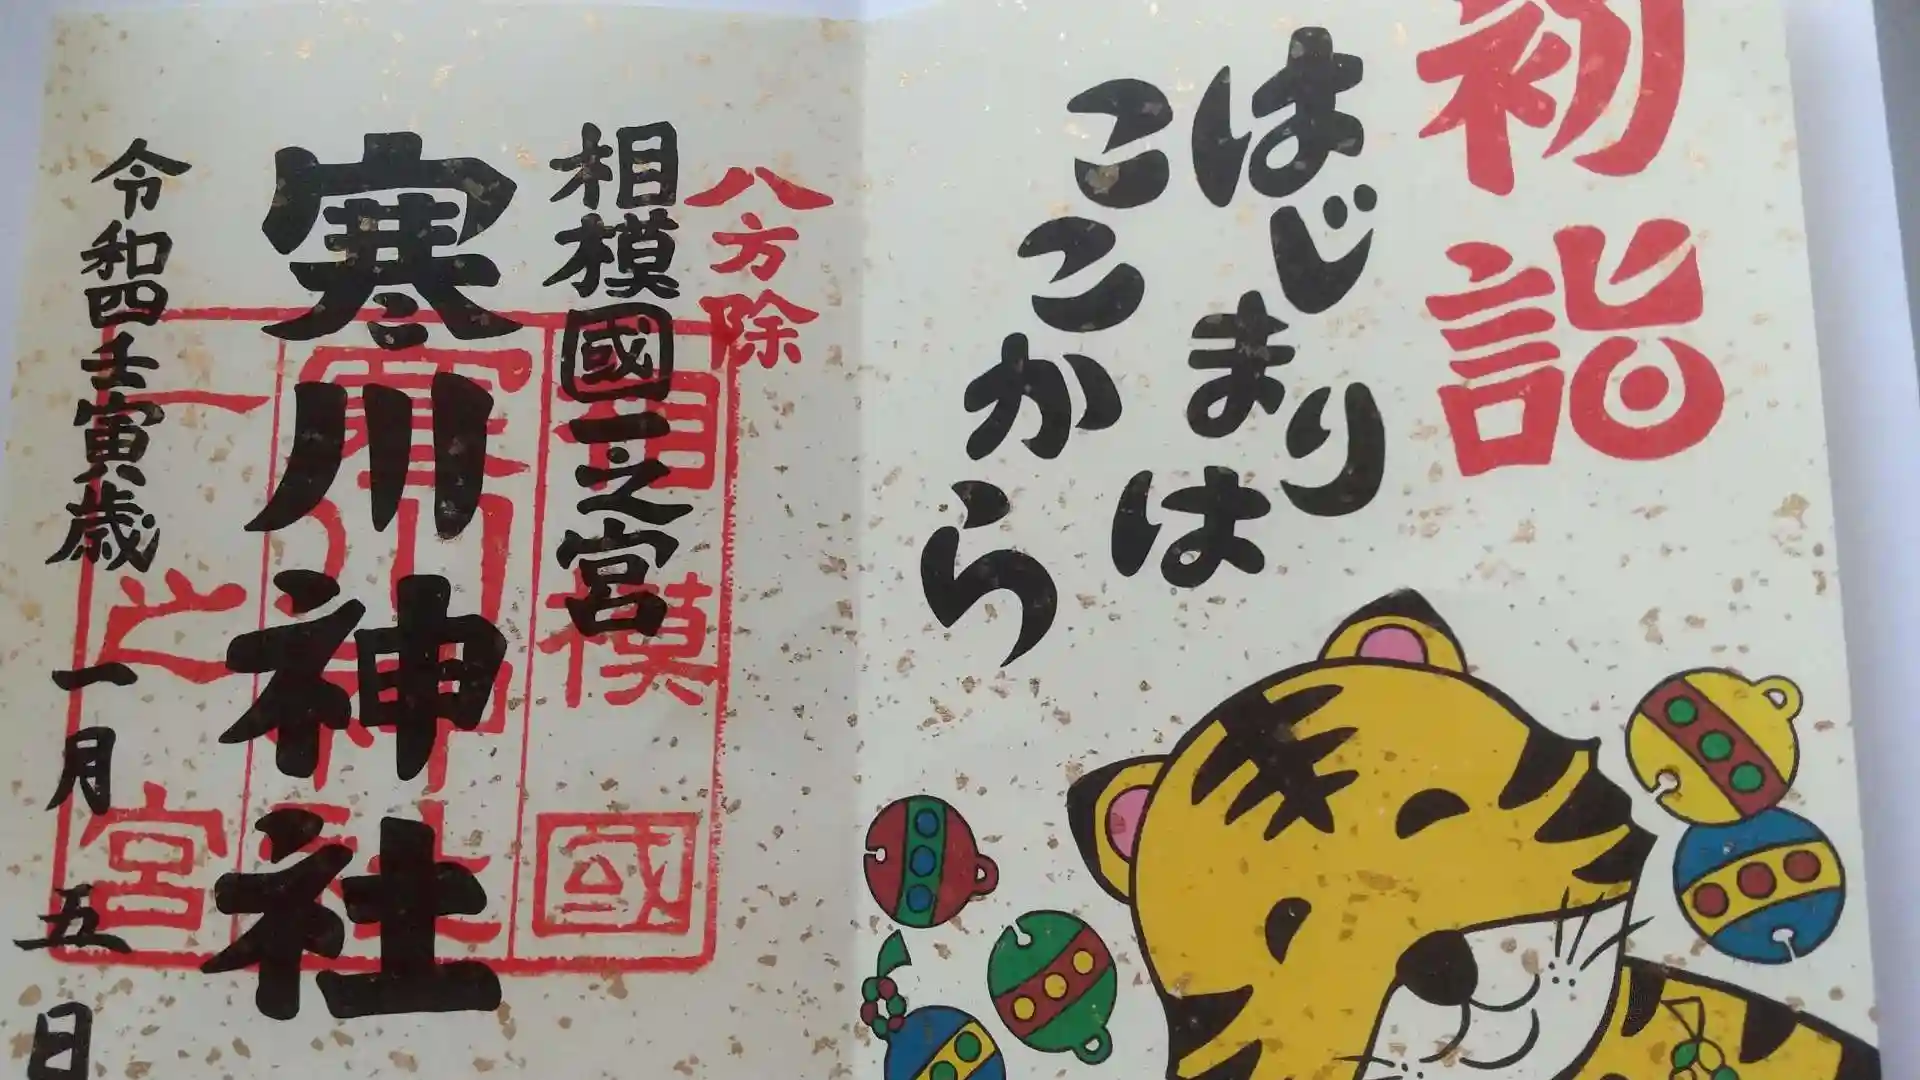 初詣
はじまりは
ここから
八方除
相模國一之宮
寒川神社
令和四壬寅歳
一月五日
相模國
寒川神社
一之宮